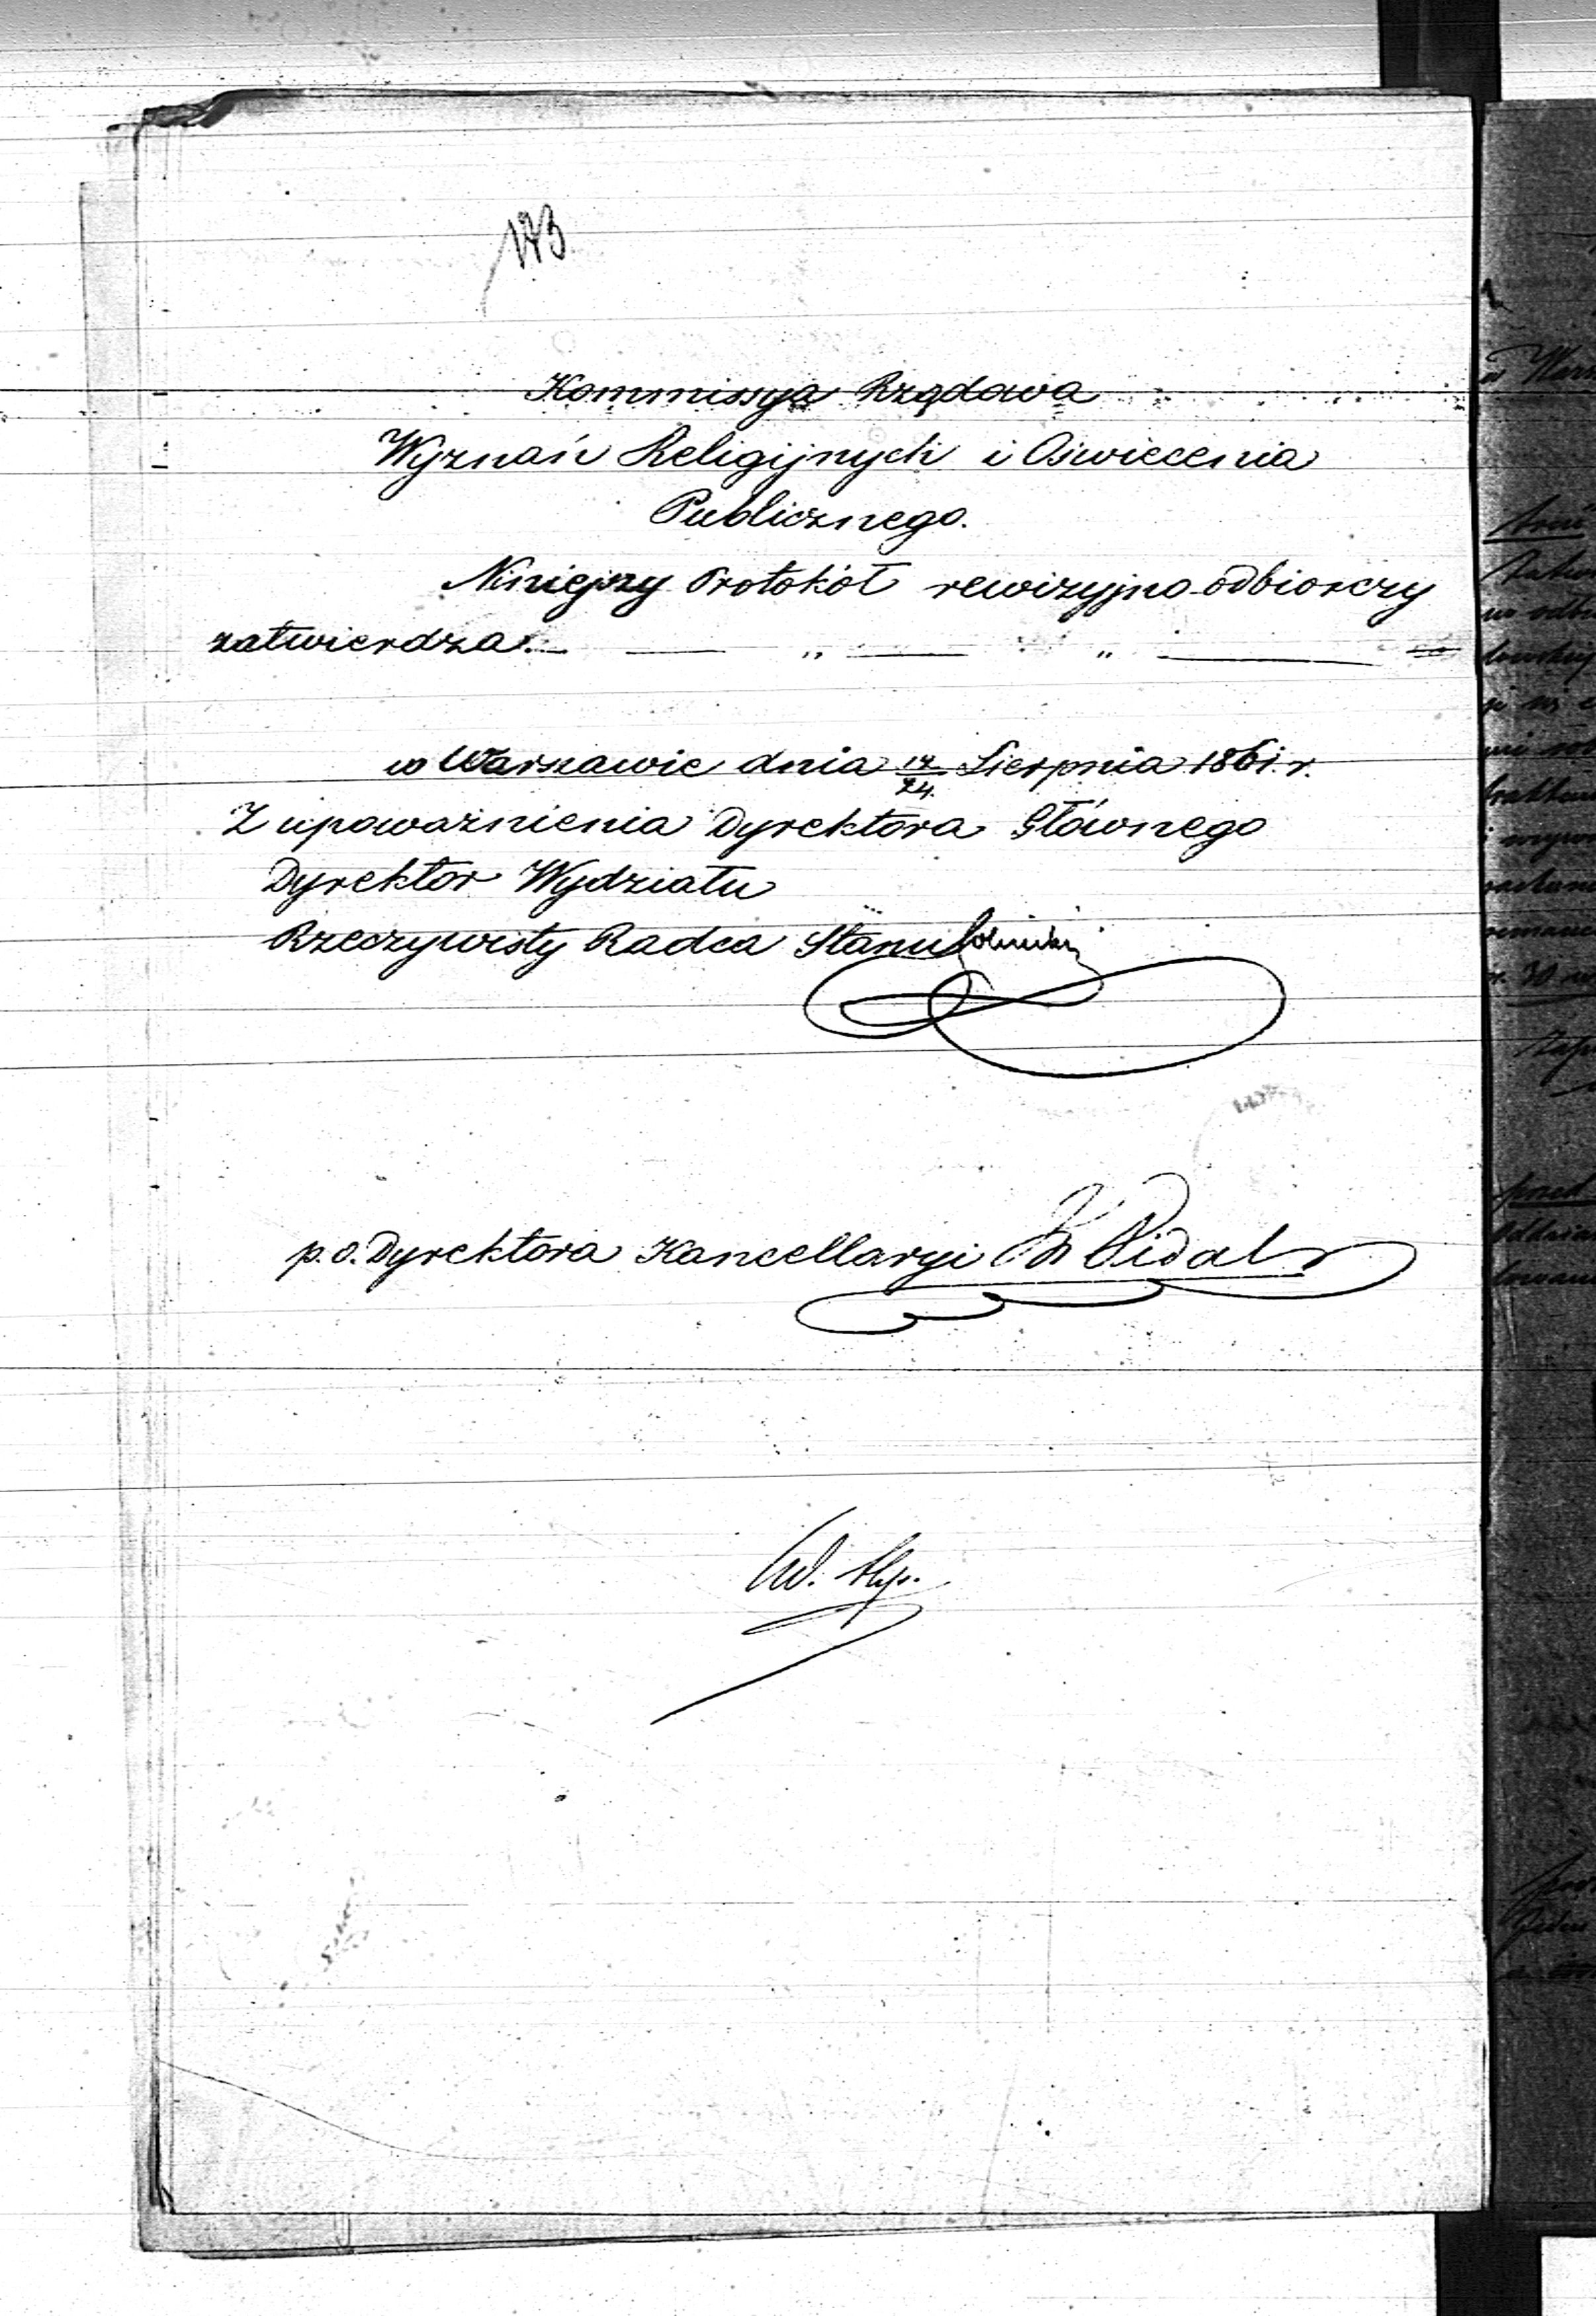 173
Kommissya Rządowa
Wyznań Religijnych i Oświecenia
Publicznego.
Niniejszy Protokół rewizyjno-odbiorczy
zatwierdza. — — „ — „ —
w Warszawie dnia 12/24 Sierpnia 1861. r.
Z upoważnienia Dyrektora Głównego
Dyrektor Wydziału
Rzeczywisty Radca Stanu
p. o. Dyrektora Kancellaryi Vidal